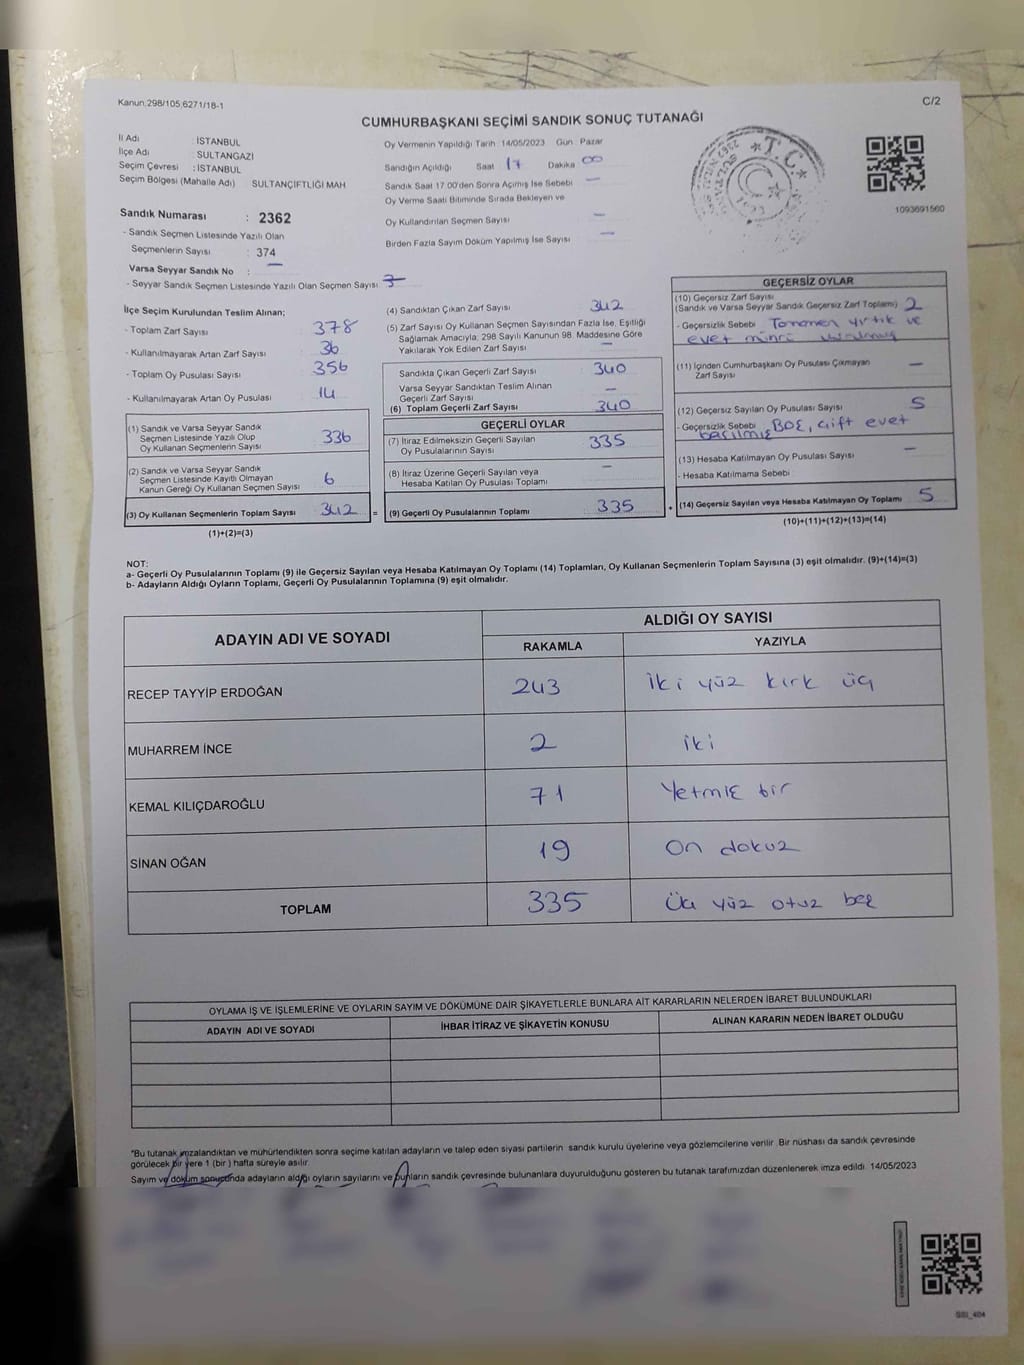 Kanun:298/105;6271/18-1
C/2
CUMHURBAŞKANI SEÇİMİ SANDIK SONUÇ TUTANAĞI
İl Adı : İSTANBUL
İlçe Adı : SULTANGAZİ
Seçim Çevresi : İSTANBUL
Seçim Bölgesi (Mahalle Adı) SULTANÇİFTLİĞİ MAH
Sandık Numarası : 2362
- Sandık Seçmen Listesinde Yazılı Olan
Seçmenlerin Sayısı : 374
Varsa Seyyar Sandık No : —
- Seyyar Sandık Seçmen Listesinde Yazılı Olan Seçmen Sayısı
Oy Vermenin Yapıldığı Tarih 14/05/2023 Gün: Pazar
Sandığın Açıldığı Saat 17 Dakika 00
Sandık Saat 17.00'den Sonra Açılmış İse Sebebi —
Oy Verme Saati Bitiminde Sırada Bekleyen ve
Oy Kullandırılan Seçmen Sayısı —
Birden Fazla Sayım Döküm Yapılmış İse Sayısı —
T.C.
1093691560
İlçe Seçim Kurulundan Teslim Alınan;
- Toplam Zarf Sayısı 378
- Kullanılmayarak Artan Zarf Sayısı 36
- Toplam Oy Pusulası Sayısı 356
- Kullanılmayarak Artan Oy Pusulası 14
(1) Sandık ve Varsa Seyyar Sandık
Seçmen Listesinde Yazılı Olup
Oy Kullanan Seçmenlerin Sayısı 336
(2) Sandık ve Varsa Seyyar Sandık
Seçmen Listesinde Kayıtlı Olmayan
Kanun Gereği Oy Kullanan Seçmen Sayısı 6
(3) Oy Kullanan Seçmenlerin Toplam Sayısı 342 =
(1)+(2)=(3)
(4) Sandıktan Çıkan Zarf Sayısı 342
(5) Zarf Sayısı Oy Kullanan Seçmen Sayısından Fazla İse, Eşitliği
Sağlamak Amacıyla, 298 Sayılı Kanunun 98. Maddesine Göre
Yakılarak Yok Edilen Zarf Sayısı —
Sandıkta Çıkan Geçerli Zarf Sayısı 340
Varsa Seyyar Sandıktan Teslim Alınan
Geçerli Zarf Sayısı —
(6) Toplam Geçerli Zarf Sayısı 340
GEÇERLİ OYLAR
(7) İtiraz Edilmeksizin Geçerli Sayılan
Oy Pusulalarının Sayısı 335
(8) İtiraz Üzerine Geçerli Sayılan veya
Hesaba Katılan Oy Pusulası Toplamı —
(9) Geçerli Oy Pusulalarının Toplamı 335 +
GEÇERSİZ OYLAR
(10) Geçersiz Zarf Sayısı
(Sandık ve Varsa Seyyar Sandık Geçersiz Zarf Toplamı) 2
- Geçersizlik Sebebi Tamamen yırtık ve
evet mührü
(11) İçinden Cumhurbaşkanı Oy Pusulası Çıkmayan
Zarf Sayısı —
(12) Geçersiz Sayılan Oy Pusulası Sayısı 5
- Geçersizlik Sebebi Boş, çift evet
basılmış
(13) Hesaba Katılmayan Oy Pusulası Sayısı —
- Hesaba Katılmama Sebebi
(14) Geçersiz Sayılan veya Hesaba Katılmayan Oy Toplamı 5
(10)+(11)+(12)+(13)=(14)
NOT:
a- Geçerli Oy Pusulalarının Toplamı (9) ile Geçersiz Sayılan veya Hesaba Katılmayan Oy Toplamı (14) Toplamları, Oy Kullanan Seçmenlerin Toplam Sayısına (3) eşit olmalıdır. (9)+(14)=(3)
b- Adayların Aldığı Oyların Toplamı, Geçerli Oy Pusulalarının Toplamına (9) eşit olmalıdır.
ADAYIN ADI VE SOYADI
ALDIĞI OY SAYISI
RAKAMLA YAZIYLA
RECEP TAYYİP ERDOĞAN 243 iki yüz kırk üç
MUHARREM İNCE 2 iki
KEMAL KILIÇDAROĞLU 71 Yetmiş bir
SİNAN OĞAN 19 On dokuz
TOPLAM 335 Üç yüz otuz beş
OYLAMA İŞ VE İŞLEMLERİNE VE OYLARIN SAYIM VE DÖKÜMÜNE DAİR ŞİKAYETLERLE BUNLARA AİT KARARLARIN NELERDEN İBARET BULUNDUKLARI
ADAYIN ADI VE SOYADI İHBAR İTİRAZ VE ŞİKAYETİN KONUSU ALINAN KARARIN NEDEN İBARET OLDUĞU
*Bu tutanak imzalandıktan ve mühürlendikten sonra seçime katılan adayların ve talep eden siyasi partilerin sandık kurulu üyelerine veya gözlemcilerine verilir. Bir nüshası da sandık çevresinde
görülecek bir yere 1 (bir) hafta süreyle asılır
Sayım ve döküm sonucunda adayların aldığı oyların sayılarını ve bunların sandık çevresinde bulunanlara duyurulduğunu gösteren bu tutanak tarafımızdan düzenlenerek imza edildi. 14/05/2023